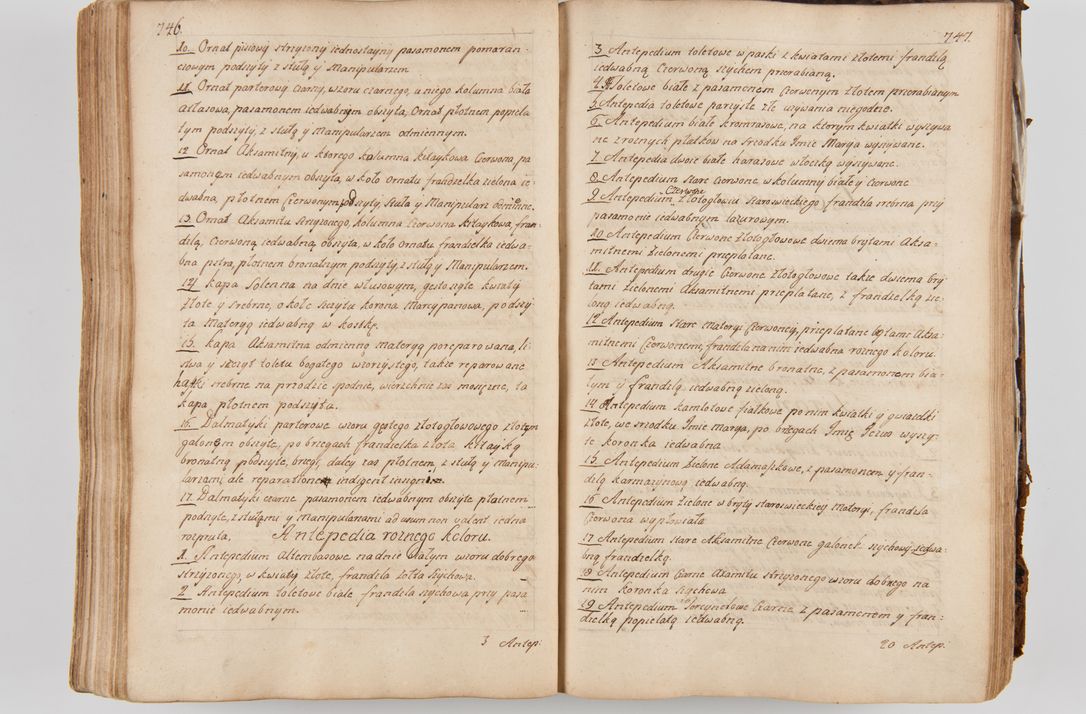 746.
10. Ornat pisiowy strzyżony iednostayny pasamonem pomaran-
czowym podszyty z stułą y Manipularzem
11. Ornat parterowy Czarny, wzoru czarnego, u niego kolumna biała
atłasowa, pasamonem iedwabnym obszyta, Ornat płotnem popiela
tym podszyty, z stułą y Manipularzem odmiennym.
12. Ornat Aksamitny, u ktorego kolumna kitaykowa Czerwona, pa
samonem iedwabnym obszyta, w koło ornatu frandzelka zielona ie-
dwabna, płotnem Czerwonym podszyty, stuła y Manipularz odmienne.
13. Ornat Aksamitu strzyżonego, kolumna Czerwona kitaykowa, fran-
dzlą, Czerwoną iedwabną obszyta, w koło ornatu frandzelka iedwa-
bna pstra, płotnem bronatnym podszyty, z stułą y Manipularzem.
14. Kapa Solenna na dnie włusowym, gesto szyte kwiaty
złote y srebrne, około Szczytu korona Marcypanowa, podszy
ta Materyą iedwabną w kostkę.
15. Kapa Aksamitna odmienną materyą poreparowana, li
stwa y szczyt toletu bogatego wzorzystego, takze reparowane
haftki srebrne na przodzie spodnie, wierzchnie zas mosięzne, ta
kapa płotnem podszyta.
16. Dalmatyki parterowe wzoru gęstego złotogłowowego złotym
galonem obszyte, po brzegach frandzelka złota kitayką
bronatną podszyte, brzegi, daley zas płotnem, z stułą y manipu-
larzami ale reparatione indigent insigni.
17. Dalmatyki czarne pasamonem iedwabnym obszyte płotnem
podszyte, z stułami y manipularzami ad usum non valent iedna
rozpruta,
Antepedia roznego koloru.
1. Antepedium altembasowe na dnie białym wzoru dobrego
strzyzonego, w kwiaty złote, frandzla zołta szychowa.
2 Antepedium toletowe białe frandzla szychowa przy pasa
monie iedwabnym.
3 Antep:
747.
3 Antepedium toletowe w paski z kwiatami złotemi frandzlą
iedwabną Czerwoną szychem przerabianą.
4 Toletowe białe z pasamonem Czerwonym złotem przerabianym
5 Antepedia toletowe parzyste złe uzywania niegodne.
6 Antepedium białe kromrasowe, na ktorym kwiatki wyszywa
ne z roznych płatkow na srodku Imie Marya wyszywane.
7 Antepedia dwoie białe harasowe włoczką wyszywane.
8 Antepedium stare Czerwone w kolumny białe y Czerwone
9 Antepedium Czerwone złotogłowiu staroswieckiego frandzla srebrna przy
pasamonie iedwabnym lazurowym.
10 Antepedium Czerwone złotogłowowe dwiema brytami Aksa-
mitnemi zielonemi przeplatane.
11. Antepedium drugie Czerwone złotogłowowe takie dwiema bry
tami zielonemi Aksamitnemi przeplatane, z frandzelką zie-
loną iedwabną.
12 Antepedium stare materyi Czerwoney, przeplatane brytami Aksa-
mitnemi Czerwonemi, frandzla na nim iedwabna roznego koloru.
13 Antepedium Aksamitne bronatne, z pasamonem bia-
łym y frandzlą iedwabną zieloną.
14 Antepedium kamlotowe fiałkowe po nim kwiatki y gwiazdki
złote, we srodku Imie Marya, po brzegach Imię Jezus wyszy-
te koronka iedwabna
15 Antepedium zielone Adamaszkowe, z pasamonem y fran-
dzlą karmazynową iedwabną.
16 Antepedium zielone w bryty staroswieckiey Materyi, frandzla
Czerwona wypłowiała
17 Antepedium stare Aksamitne Czerwone galonek szychowy iedwa-
bną frandzelką.
18 Antepedium Czarne Axamitu strzyzonego wzoru dobrego na
nim koronka szychowa
19 Antepedium Tercynelowe Czarne z pasamonem y fran-
dzelką popielatą iedwabną.
20 Antep: